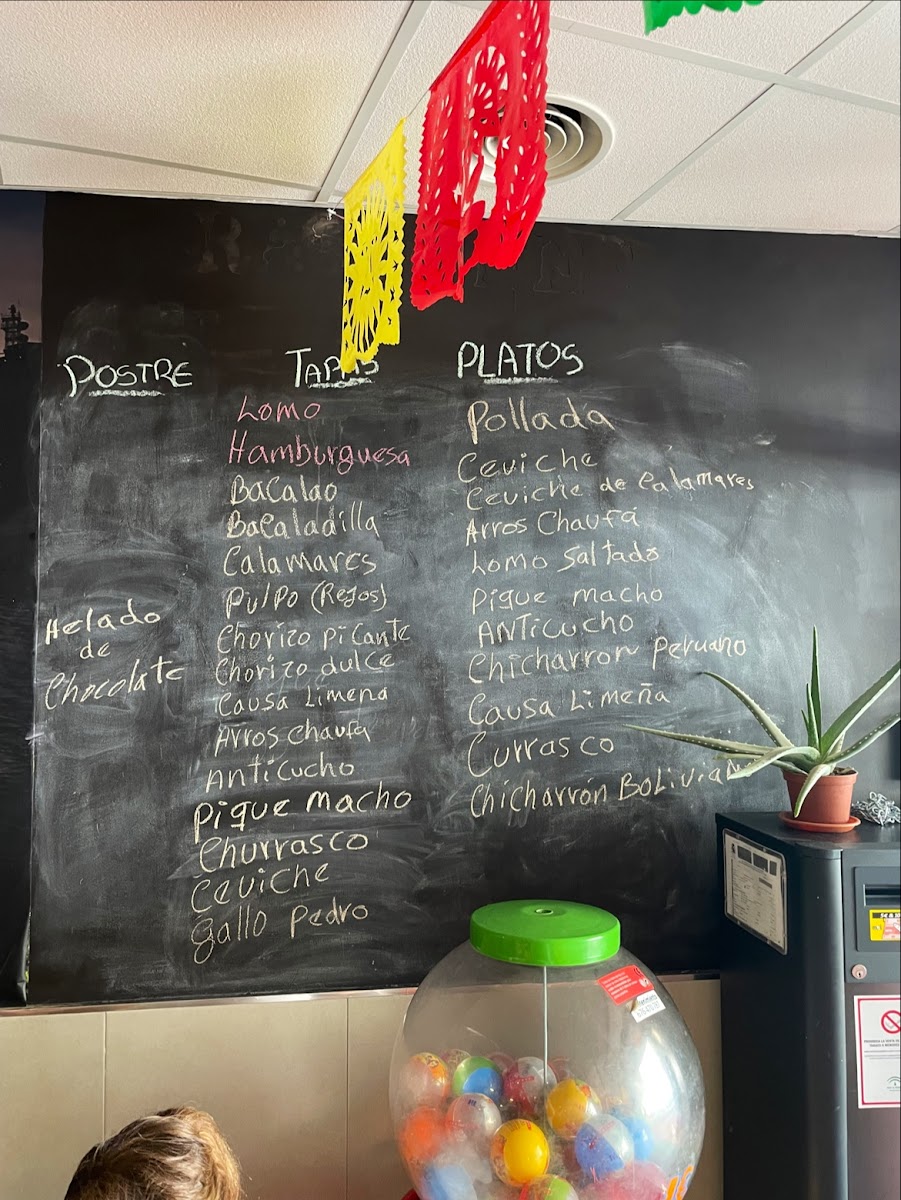 POSTRE
Helado
de
Chocolate
TAPAS
Lomo
Hamburguesa
BaCalao
Bacaladilla
Calamares
Pulpo (Rejos)
Chorizo picante
Chorizo dulce
Causa Limena
Arros chaufa
Anticucho
Pique macho
Churrasco
Ceviche
gallo pedro
PLATOS
Pollada
Ceviche
Ceviche de Calamares
Arros Chaufa
Lomo saltado
pique macho
ANTicucho
Chicharron peruano
Causa Limeña
Currasco
Chicharrón